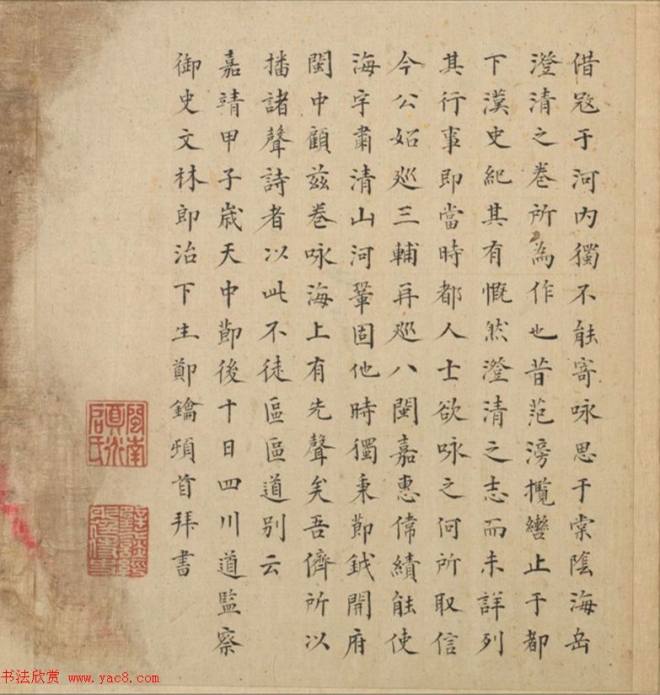 借冦于河内獨不能寄咏思于棠陰海岳
澄清之巻所為作也昔范滂攬轡止于都
下漢史紀其有慨然澄清之志而未詳列
其行事即當時都人士欲咏之何所取信
今公始廵三輔再廵八閩嘉惠偉績能使
海宇肅清山河鞏固他時獨秉節鉞開府
閩中顧兹巻咏海上有先聲矣吾儕所以
播諸聲詩者以此不徒區區道別云
嘉靖甲子歲天中節後十日四川道監察
御史文林郎治下生鄭鑰頓首拜書
书法欣赏 www.yac8.com